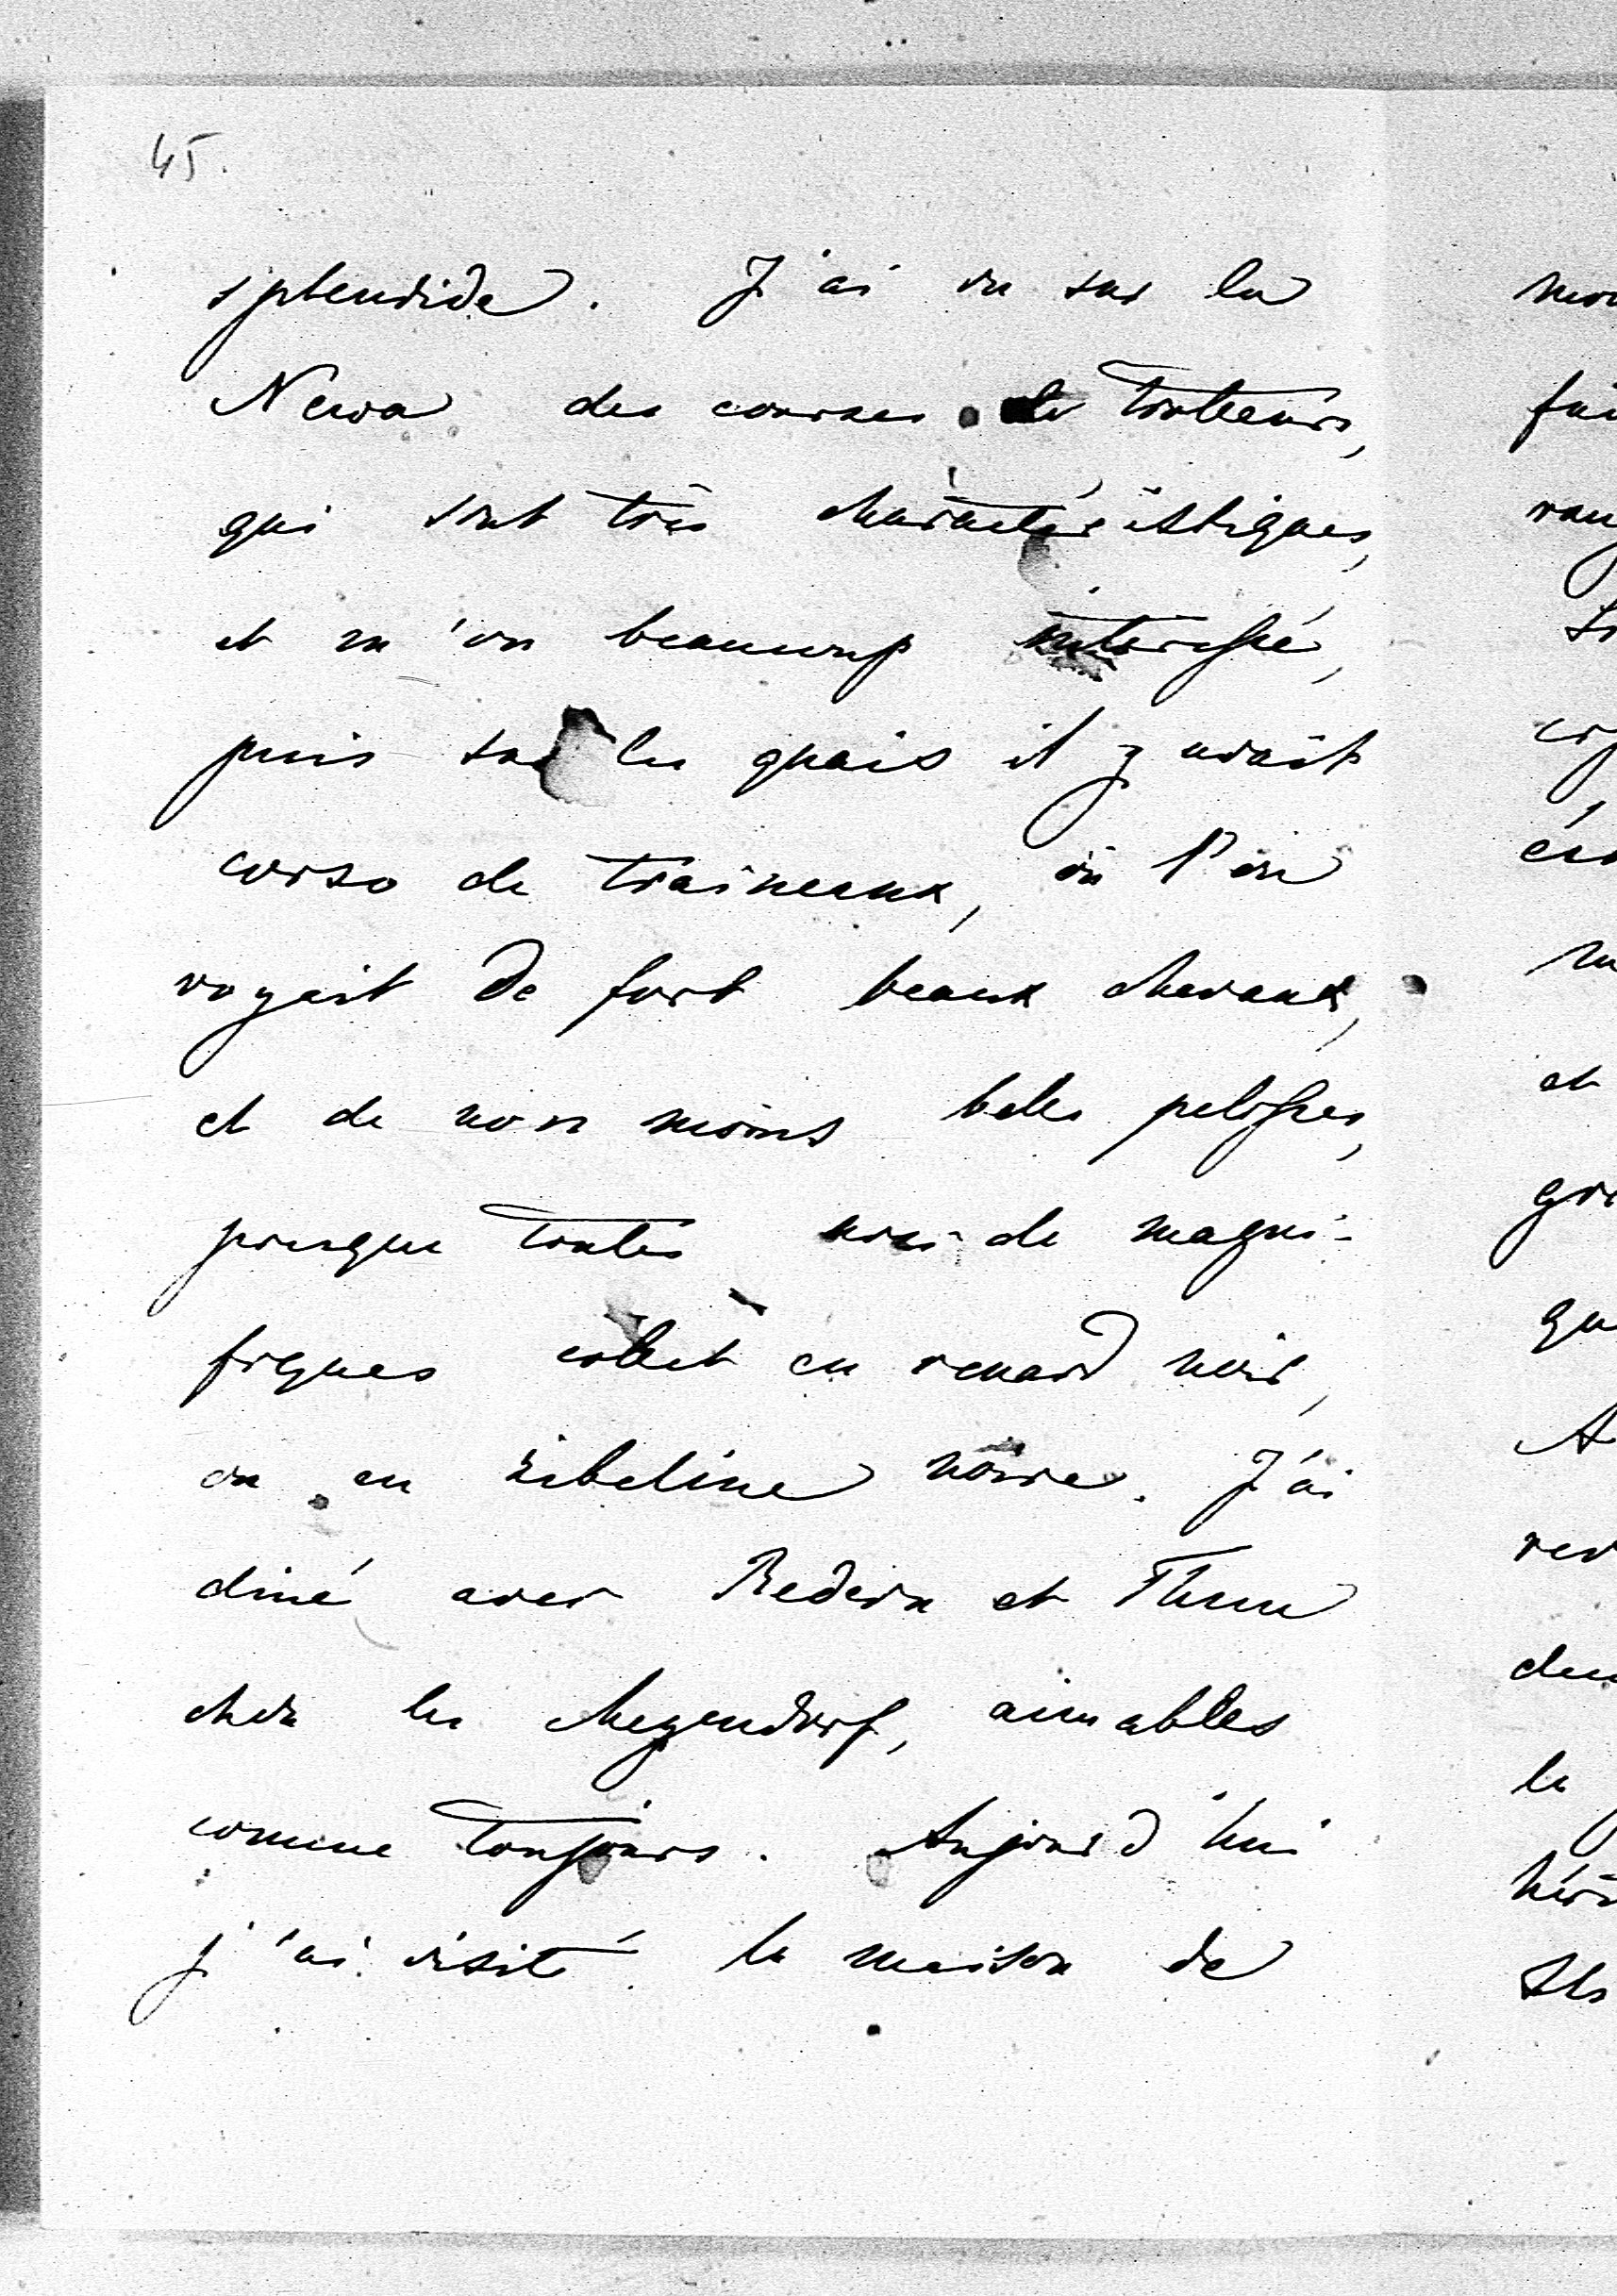 45.
splendide. J'ai vu sur la
Newa des courses de trotteurs,
qui sont très charactéristiques,
et m'on beaucoup interessé,
puis sur les quais il y avait
corso de traineaux, où l'on
voyait de fort beaux chevaux,
et de non moins belles pelisses,
presque toutes avec de magni-
fiques collet en renard noir,
ou en zibeline noire. J'ai
diné avec Redern et Thun
chez les Meyendorf, aimables
comme toujours. Aujourd'hui
j'ai visité la maison de